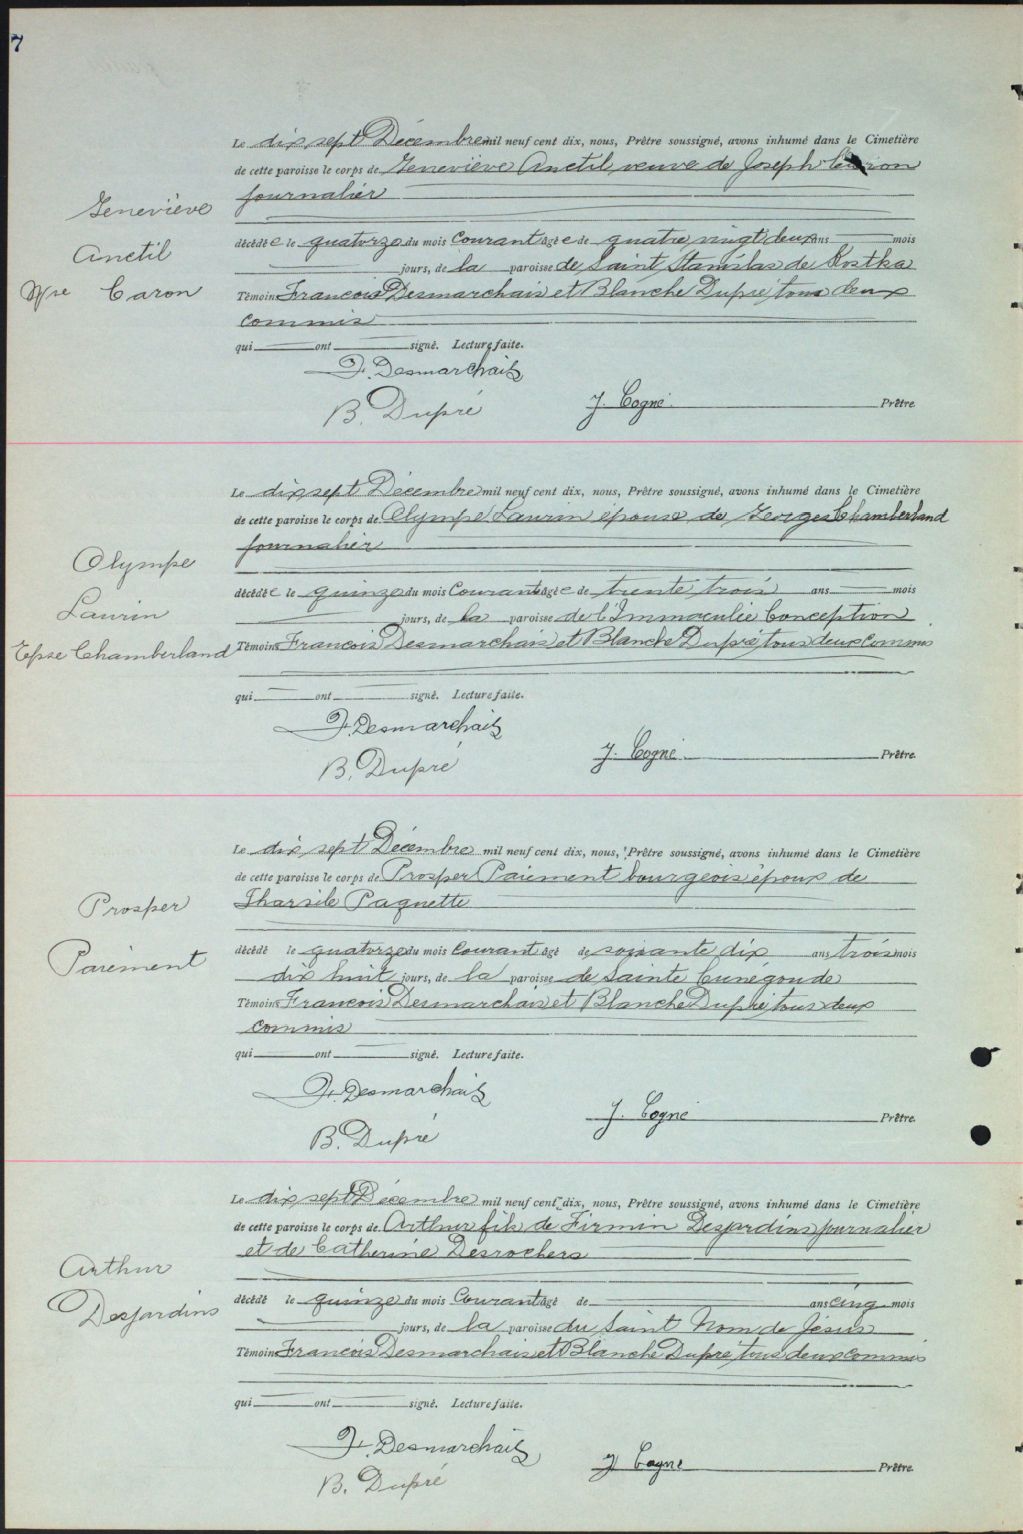 7
Le dix sept Décembre mil neuf cent dix, nous, Prêtre soussigné, avons inhumé dans le Cimetière
de cette paroisse le corps de Geneviève Anctil veuve de Joseph Caron
journalier
Geneviève
Anctil
Vve Caron
décédé e le quatorze du mois courant âgé e de quatre vingt deux ans mois
jours, de la paroisse de Saint Stanislas de Kostka
Témoins Francois Desmarchais et Blanche Dupré tous deux
commis
qui ont signé. Lecture faite.
F. Desmarchais
B. Dupré
J. Cogné Prêtre.
Le dix sept Décembre mil neuf cent dix, nous, Prêtre soussigné, avons inhumé dans le Cimetière
de cette paroisse le corps de Olympe Laurin épouse de Georges Chamberland
journalier
Olympe
Laurin
Epse Chamberland
décédé e le quinze du mois courant âgé e de trente trois ans mois
jours, de la paroisse de l'Immaculée Conception
Témoins Francois Desmarchais et Blanche Dupré tous deux commis
qui ont signé. Lecture faite.
F. Desmarchais
B. Dupré
J. Cogné Prêtre.
Le dix sept Décembre mil neuf cent dix, nous, Prêtre soussigné, avons inhumé dans le Cimetière
de cette paroisse le corps de Prosper Paiement bourgeois époux de
Tharsile Paquette
Prosper
Paiement
décédé le quatorze du mois courant âgé de soixante dix ans trois mois
dix huit jours, de la paroisse de Sainte Cunégonde
Témoins Francois Desmarchais et Blanche Dupré tous deux
commis
qui ont signé. Lecture faite.
F. Desmarchais
B. Dupré
J. Cogné Prêtre.
Le dix sept Décembre mil neuf cent dix, nous, Prêtre soussigné, avons inhumé dans le Cimetière
de cette paroisse le corps de Arthur fils de Firmin Desjardins journalier
et de Catherine Desrochers
Arthur
Desjardins
décédé le quinze du mois courant âgé de ans cinq mois
jours, de la paroisse du Saint Nom de Jésus
Témoins Francois Desmarchais et Blanche Dupré tous deux commis
qui ont signé. Lecture faite.
F. Desmarchais
B. Dupré
J Cogné Prêtre.